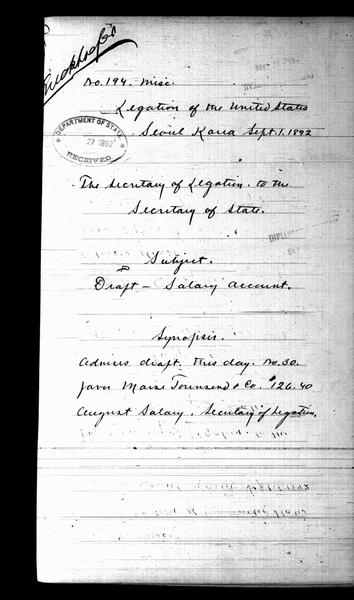 No. 194. Misc.
Legation of the United States
Seoul Korea Sept. 1. 1892
DEPARTMENT OF STATE
27 1892
RECEIVED
The Secretary of Legation. to the
Secretary of State.
Subject.
Draft - Salary account.
Synopsis.
Advises draft. this day. No. 30.
favor Morse Townsend & Co. $126.40
August Salary. Secretary of Legation.